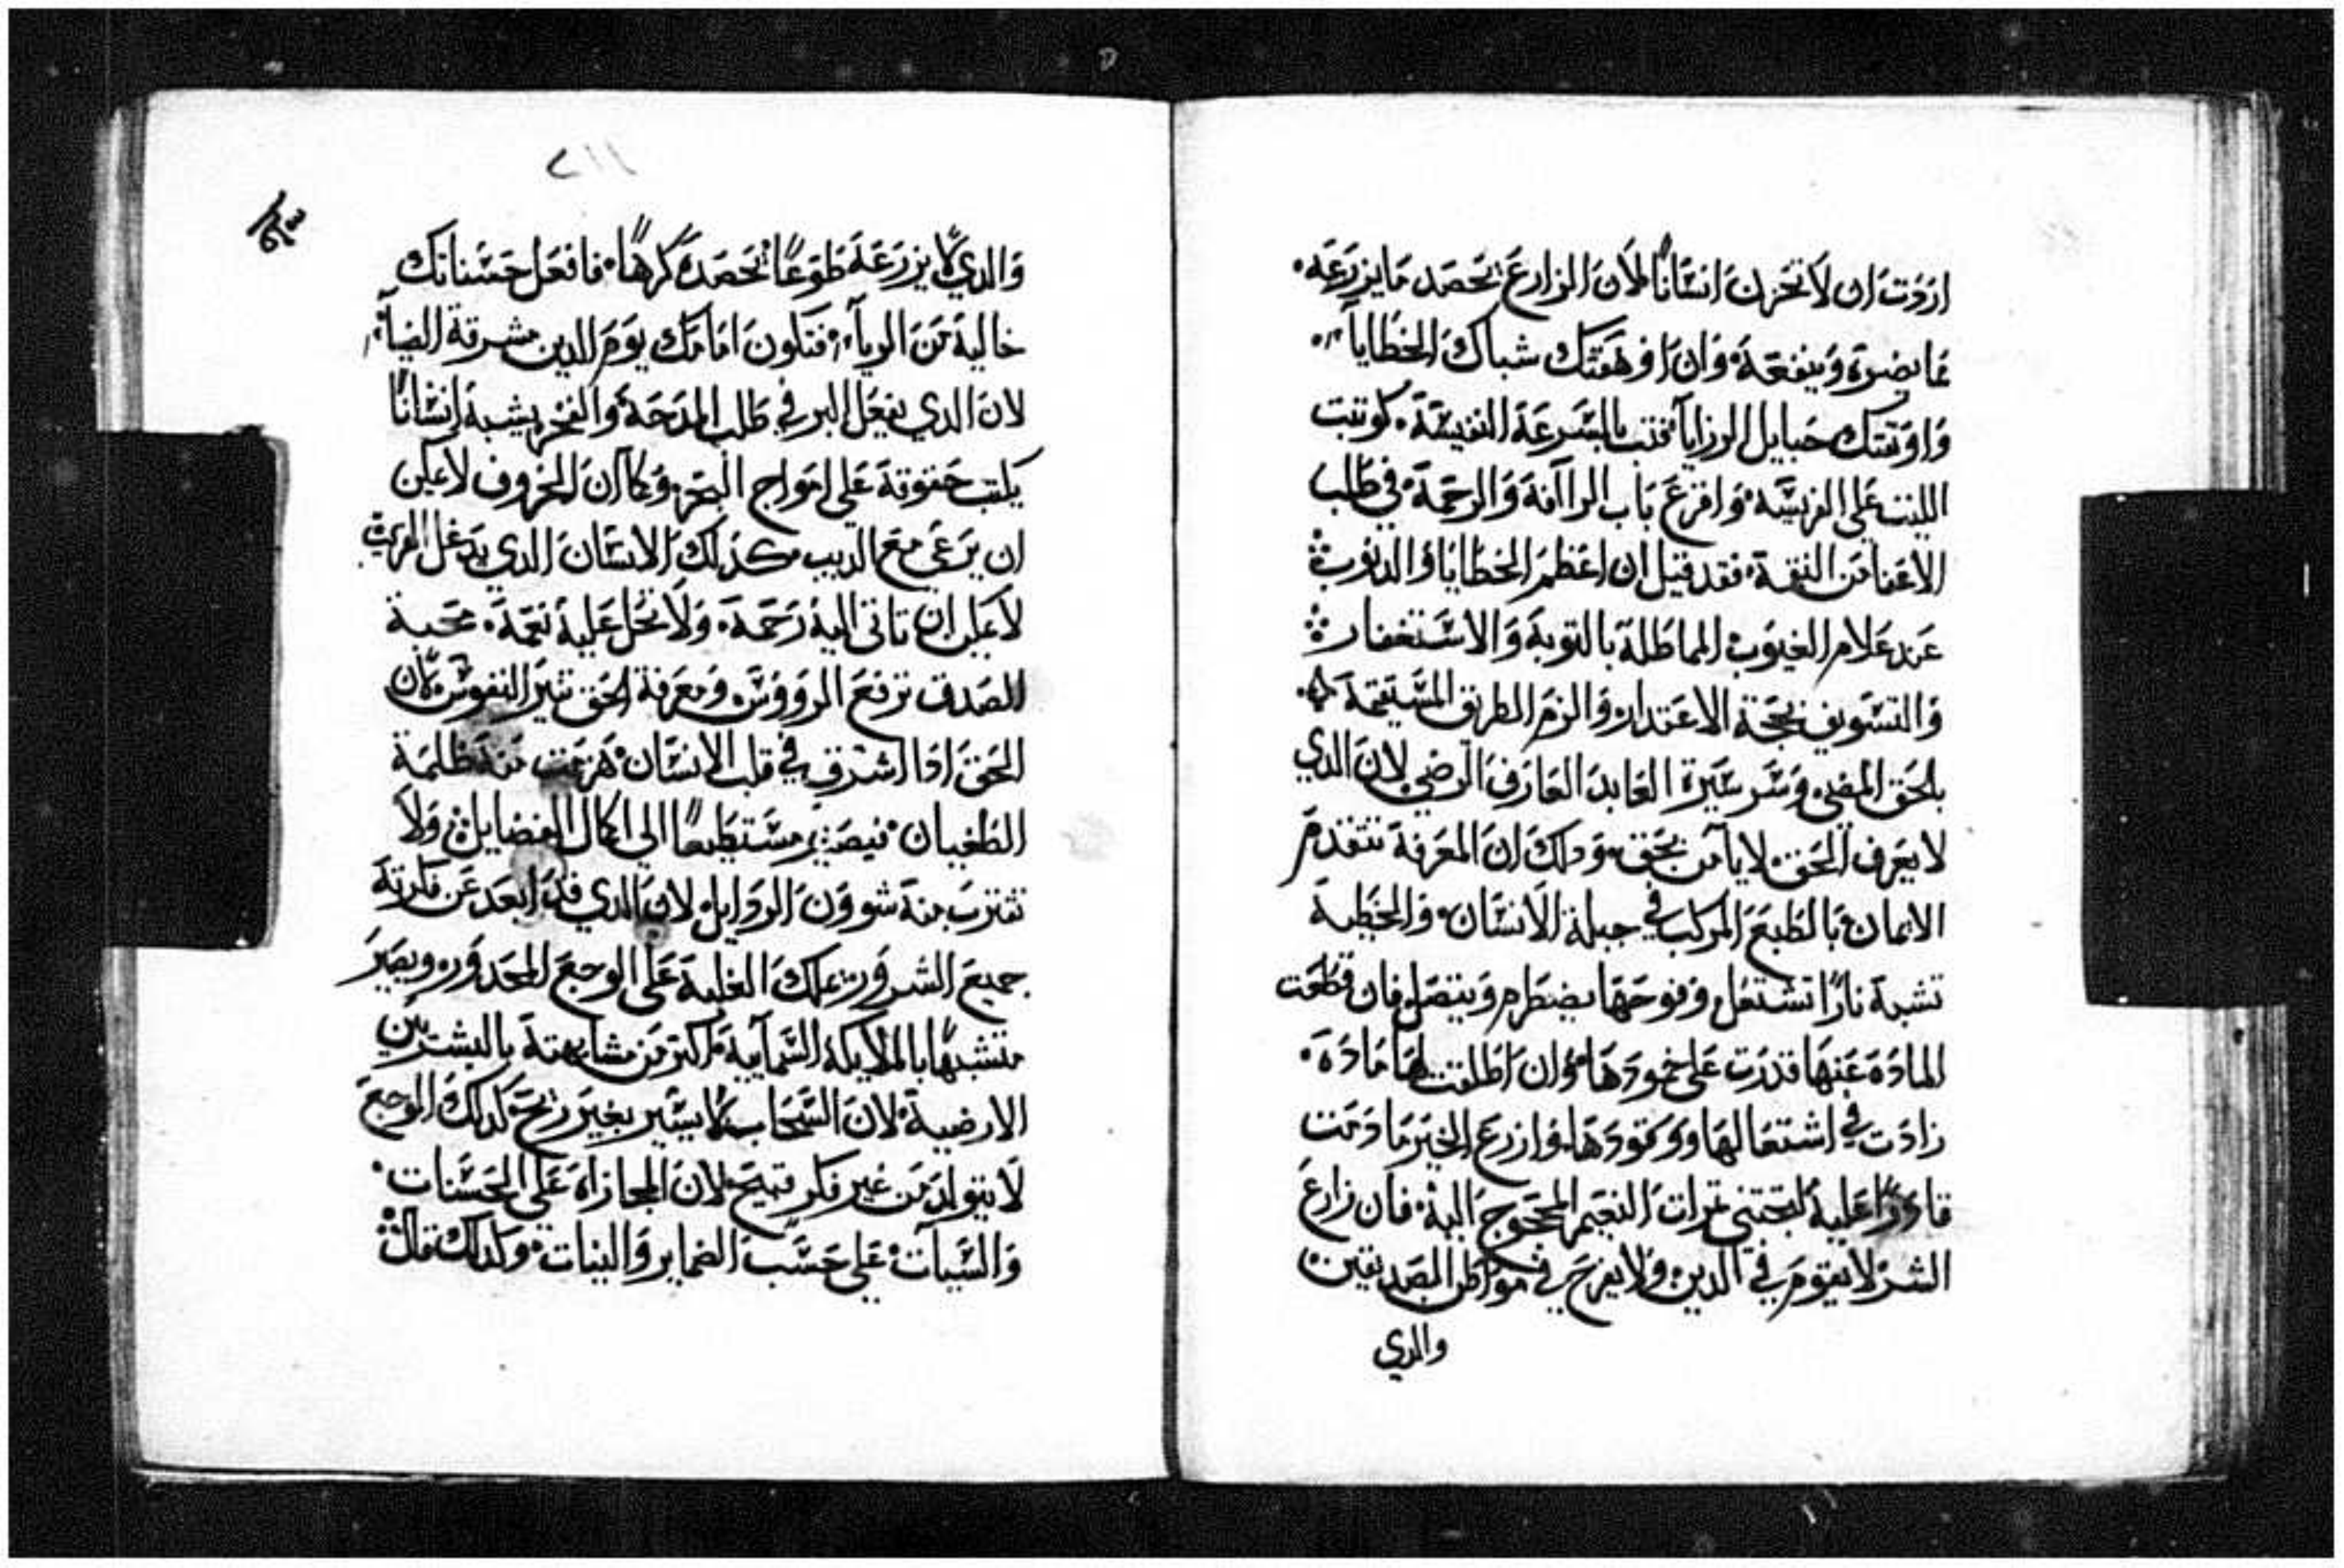 اردت ان لا تحزن انسانًا لان الزارع يحصد ما يزرعه.
ما يضره وينفعه وان اوهقتك شباك الخطايا
واوثقتك حبايل الرزايا فتب بالسرعة النفيسة. كوثبت
الليث على الفريسة. واقرع باب الراافة والرحمة. في طلب
الاعفا من النقمة. فقد قيل ان اعظم الخطايا والدنوب
عند علام الغيوب المماطلة بالتوبة والاستغفار
والتسويف بحجة الاعتدار. والزم الطريق المستقيمة
بالحق المضي وسر سيرة العابد العارف الرضي. لان الدي
لا يعرف الحق. لا يامن بحق. ودلك ان المعرفة تتقدم
الايمان بالطبع المركب في جبلة الانسان. والخطية
تشبه نارًا تشتعل وفوحها يضطرم ويتصل فان قطعت
المادة عنها قدرت على خمودها. وان اطلقت لها مادة.
زادت في اشتعالها ووقودها. وازرع الخير ما دمت
قادرًا عليه لتجتني ثمرات النعيم المحجوج اليه. فان زارع
الشر لا يقوم في الدين ولا يفرح في مواطن الصديقين
والدي
٢١١
والدي لا يزرعه طوعًا يحصده كرهًا. فافعل حسناتك
خالية من الريآ. فتكون امامك يوم الدين مشرقة الضيآ.
لان الدي يفعل البر في طلب المدحة والفخر يشبه انسانًا
يكتب حقوقه على امواج البحر. وكما ان الخروف لا يمكن
ان يرعى مع الديب كذلك الانسان الدي يدغل القريب.
لا يمكن ان تاتى اليه رحمة. ولا تحل عليه نعمة. محبة
الصدق ترفع الرووس. ومعرفة الحق تنير النفوس. لان
الحق ادا اشرق في قلب الانسان. هربت منه ظلمة
الطغيان. فيصير مستطيعًا الى اكمال الفضايل. ولا
تقترب منه شوون الردايل. لان الدي قد ابعد عن فكرته
جميع الشرور. يملك الغلبة على الوجع المحدور. ويصير
متشبهًا بالملايكة السمآيية اكتر من مشابهته بالبشريين
الارضية. لان السحاب لا يسير بغير ريح. كدلك الوجع
لا يتولد من غير فكر قبيح. لان المجازاه على الحسنات.
والسيات. على حسب الضماير والنيات. وكدلك قال